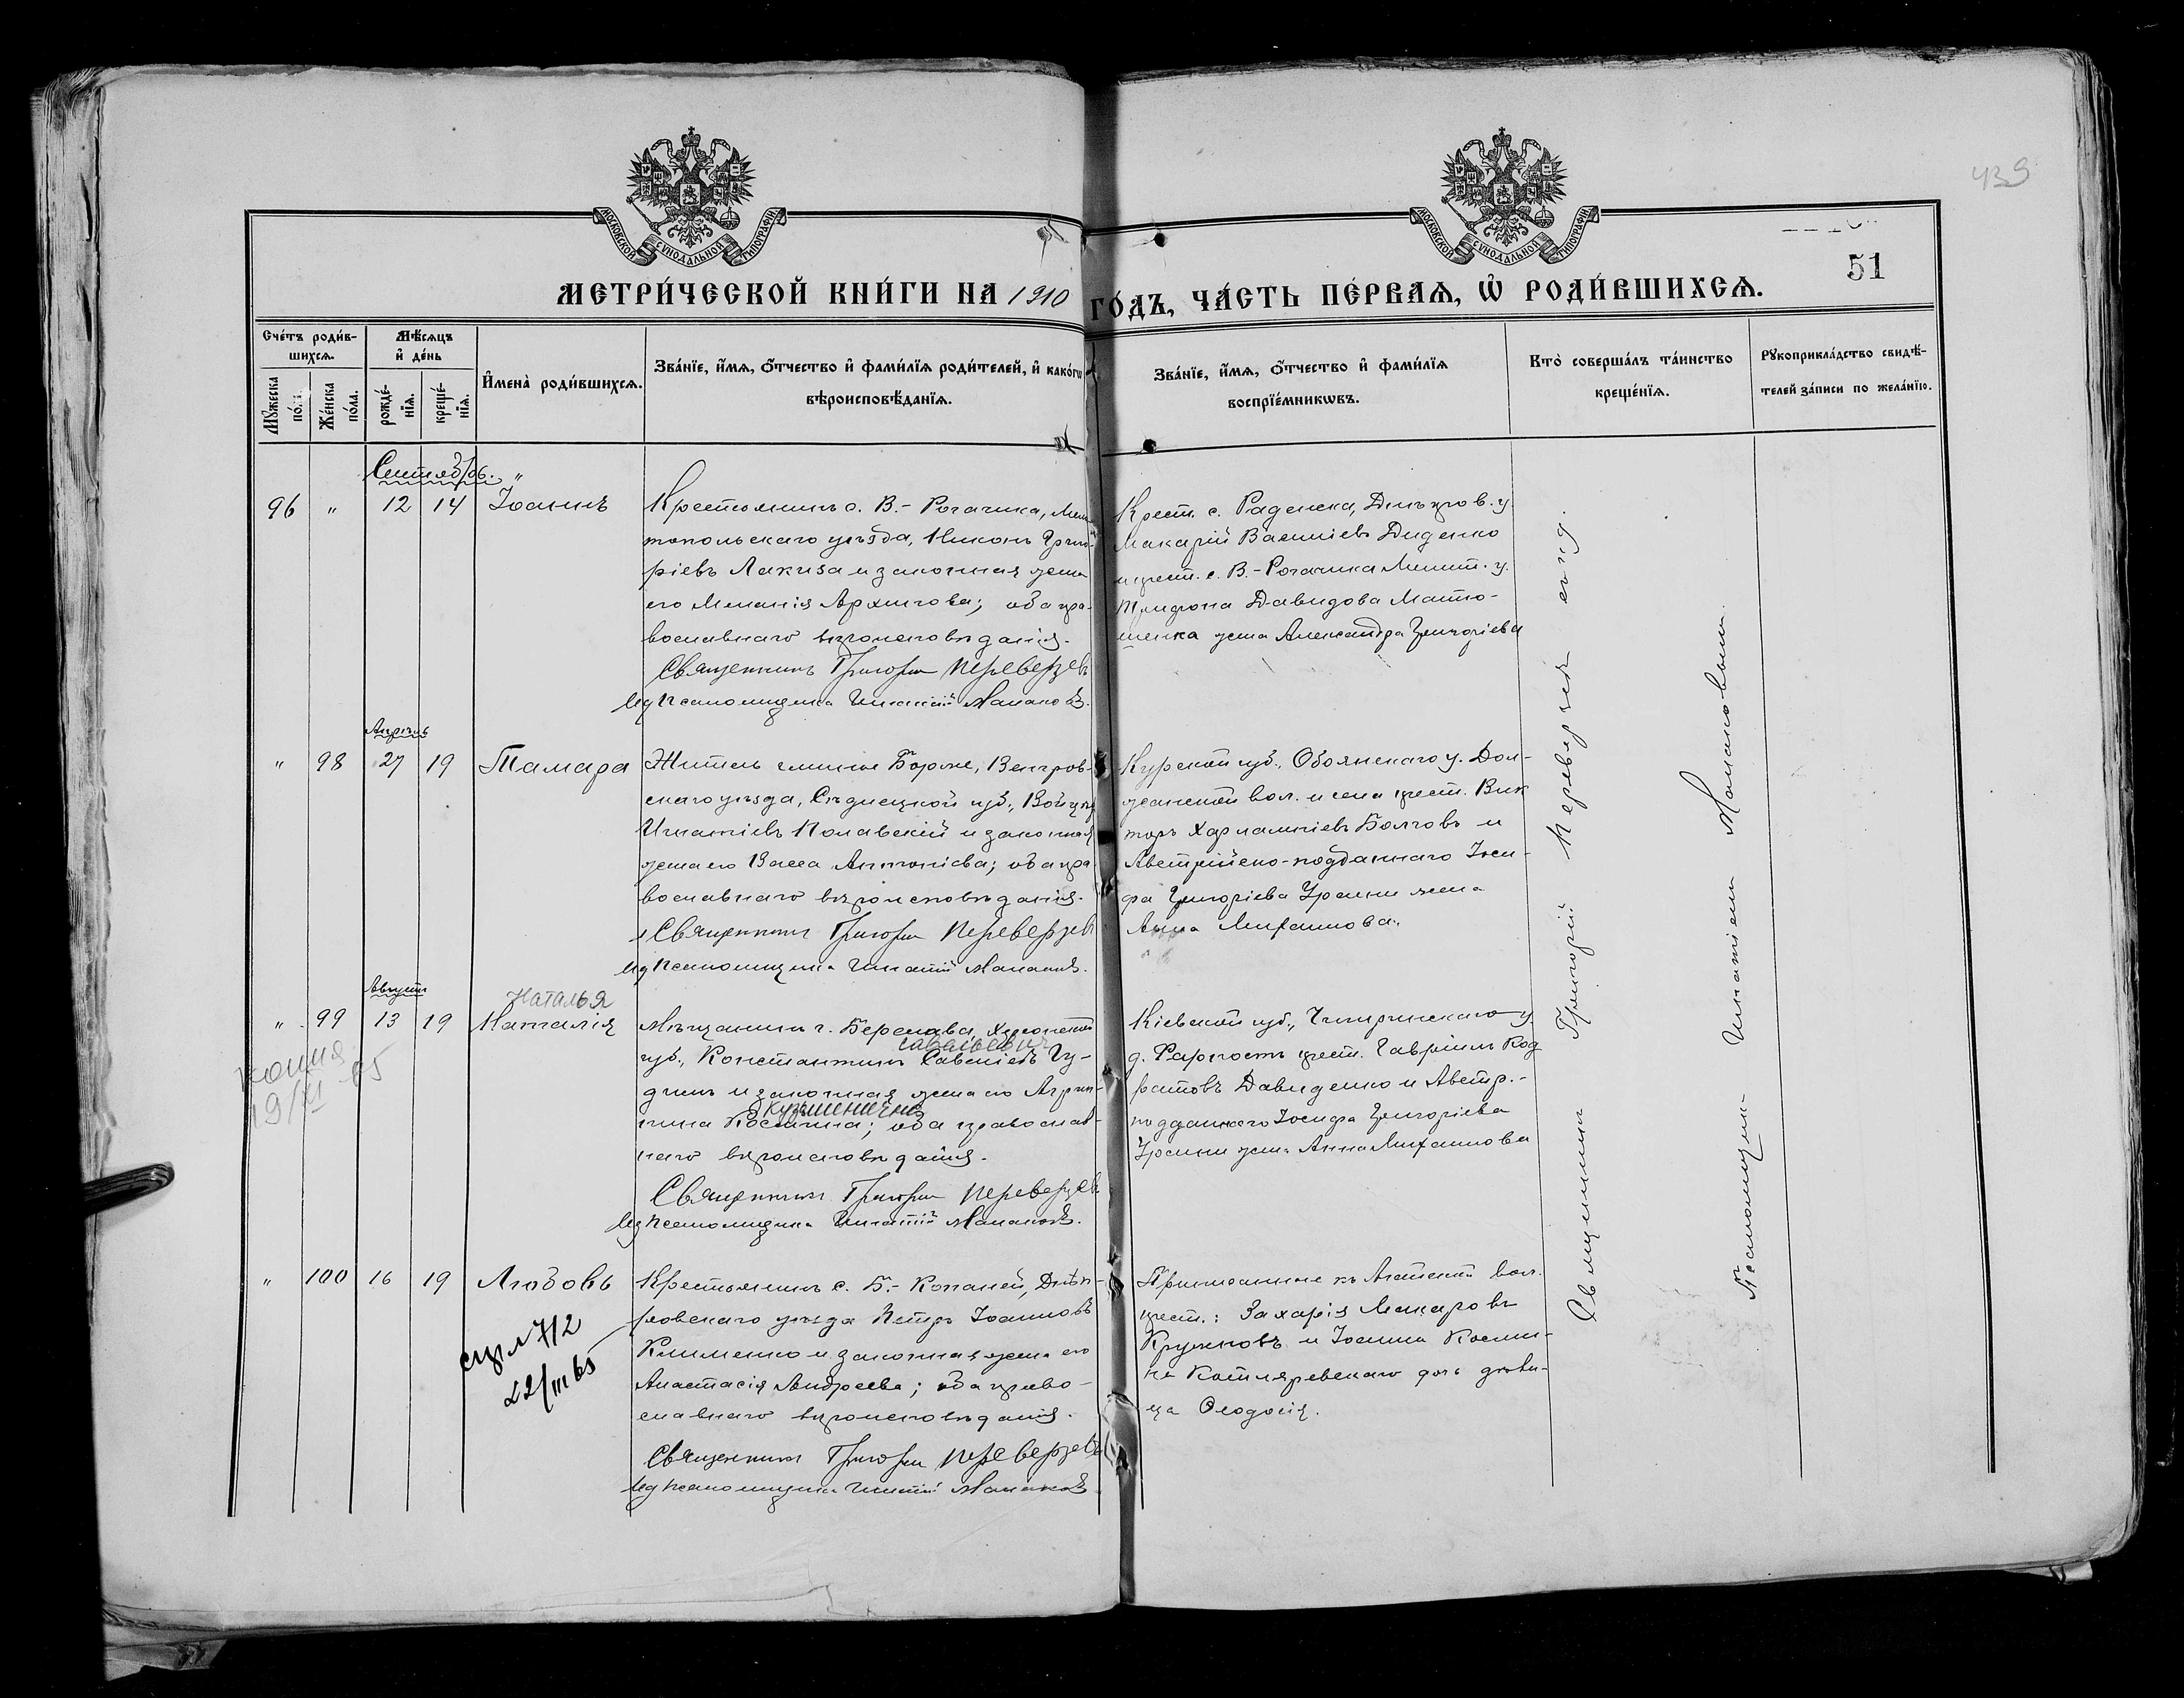 439
МОСКОВСКОЙ СУНОДАЛЬНОЙ ТИПОГРАФІИ
МОСКОВСКОЙ СУНОДАЛЬНОЙ ТИПОГРАФІИ
51
МЕТРИ́ЧЕСКОЙ КНИ́ГИ НА 1910 ГО́ДЪ, ЧА́СТЬ ПЕ́РВАѦ, Ѡ҆ РОДИ́ВШИХСѦ.
Сче́тъ роди́в-
шихсѧ.
Мꙋ́жеска по́ла.
Же́нска по́ла.
Мѣ́сѧцъ
и҆ де́нь
рожде́-
нїѧ.
креще́-
нїѧ.
И҆мена̀ роди́вшихсѧ.
Зва́нїе, и҆́мѧ, о҆́тчество и҆ фами́лїѧ роди́телей, и҆ како́гѡ
вѣроисповѣ́данїѧ.
Зва́нїе, и҆́мѧ, о҆́тчество и҆ фами́лїѧ
воспрїе́мникѡвъ.
Кто̀ соверша́лъ та́инство
креще́нїѧ.
Рꙋкоприкла́дство свидѣ́-
телей за́писи по жела́нїю.
Сентябрь.
96 " 12 14 Іоаннъ
Крестьянинъ с. В.-Рогачика, Мели-
топольскаго уѣзда, Никонъ Григо-
ріевъ Лакиза и законная жена
его Меланія Архипова; оба пра-
вославнаго вѣроисповѣданія.
Священникъ Григорій Переверзевъ
Ид псаломщика Игнатій Манаковъ.
Крест. с. Раденска, Днѣпров. у.
Макарій Василіевъ Диденко
и крест. с. В.-Рогачика Мелит. у.
Трифона Давидова Матю-
шенка жена Александра Григоріева
Апрѣль
" 98 27 19 Тамара
Житель гмины Борже, Венгров-
скаго уѣзда, Сѣдлецкой губ., Войцехъ
Игнатіевъ Полавскій и законная
жена его Васса Антоніева; оба пра-
вославнаго вѣроисповѣданія.
Священникъ Григорій Переверзевъ
Ид псаломщика Игнатій Манаковъ.
Курской губ., Обоянскаго у. Дол-
жанской вол. и села крест. Вик
торъ Харлампіевъ Болговъ и
Австрійско-подданнаго Іоси-
фа Григоріева Урсини жена
Анна Михаилова.
Августъ
Наталья
" 99 13 19 Наталія
Мѣщанинъ г. Берислава, Херсонской
Савельевич
губ., Константинъ Савеліевъ Гу-
динъ и законная жена его Агрип-
Кузьминична
пина Космина; оба православ-
наго вѣроисповѣданія.
Священникъ Григорій Переверзевъ
Ид псаломщика Игнатій Манаковъ.
Кіевской губ., Чигиринскаго у.
крест. Гавріилъ Код
ратовъ Давиденко и Австр.-
подданнаго Іосифа Григоріева
Урсини жена Анна Михаилова
копия
19/XI 65
" 100 16 19 Любовь
Крестьянинъ с. Б.-Копаней, Днѣп-
ровскаго уѣзда Петръ Іоанновъ
Клименко и законная жена его
Анастасія Андреева; оба право-
славнаго вѣроисповѣданія.
Священникъ Григорій Переверзевъ
Ид псаломщика Игнатій Манаковъ
Приписанные къ вол.
крест.: Захарія Макаровъ
Кружновъ и Іоанна Косми-
на Котляревскаго дочь дѣви-
ца Ѳеодосія.
712
22/III 65
Священникъ Григорій Переверзевъ съ и.д.
Псаломщика Игнатіемъ Манаковымъ.